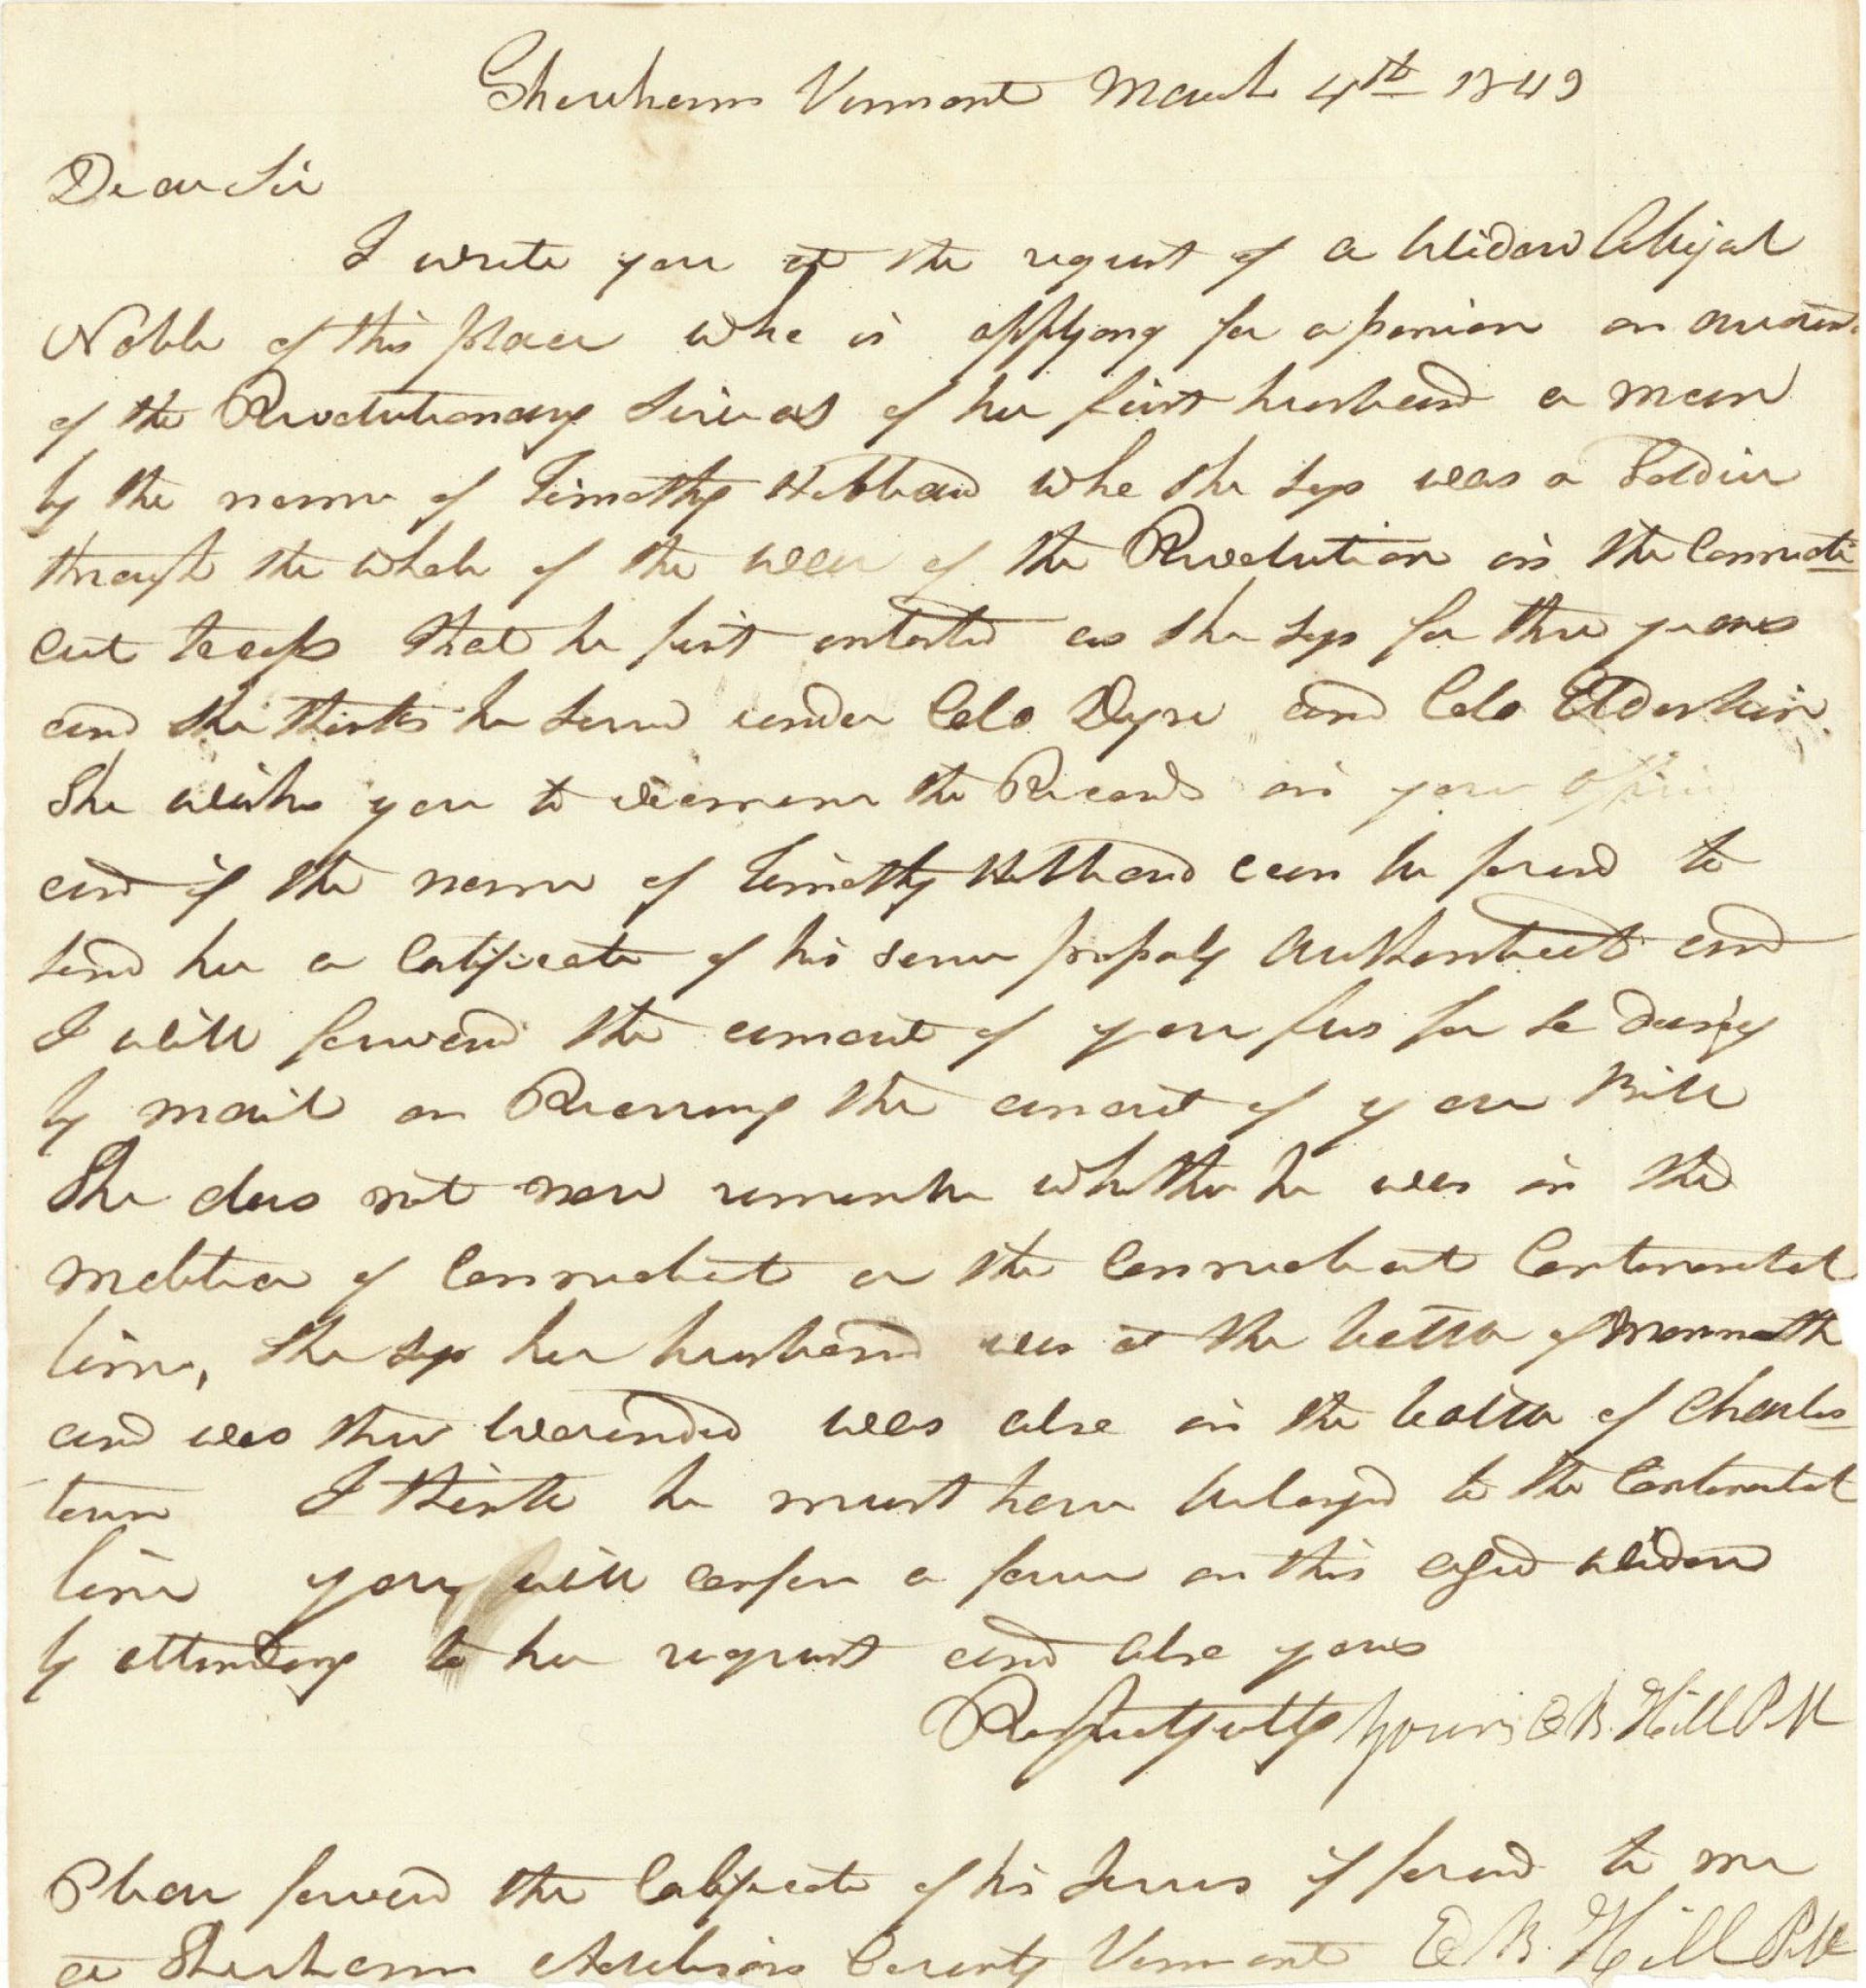 Shoreham Vermont March 4th 1843
Dear Sir
I write you at the request of a Widow Abijal
Noble of this place who is applying for a pension on account
of the Revolutionary Services of her first husband a man
by the name of Timothy Hibbard who she says was a Soldier
through the whole of the war of the Revolution in the Connecti
cut troops that he first enlisted as she says for three years
and she thinks he served under Colo Dyre and Colo Elderkin
She wishes you to examine the Records in your office
and if the name of Timothy Hibbard can be found to
send her a Certificate of his service properly Authenticat and
I will forward the amount of your fees for so doing
by mail on Receiving the amount of your Bill
She does not now remember whether he was in the
melitia of Connecticut or the Connecticut Continental
line, she says her husband was at the battle of Monmouth
and was there wounded was also in the battle of Charles
town I think he must have belonged to the Continental
line you will confer a favour on this aged widow
by attending to her request and also yours
Respectfully Yours E B. Hill P M
Please forward the Certificate of his Services if found to me
at Shoreham Addison County Vermont E B. Hill P M